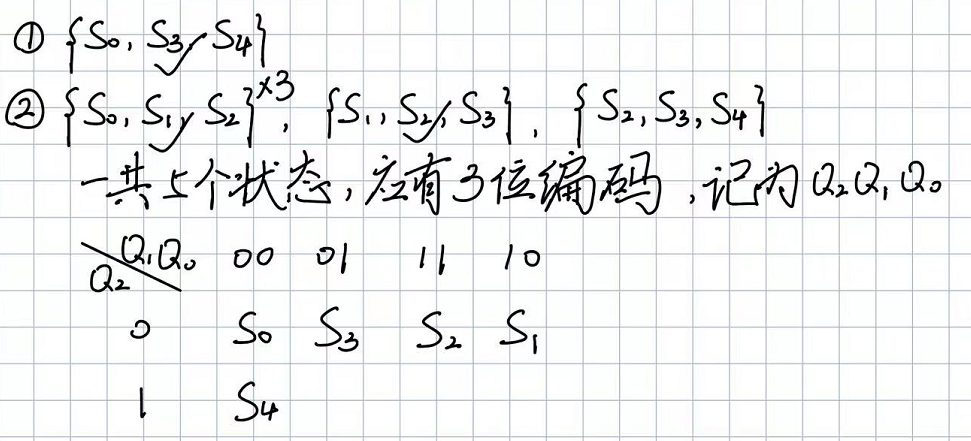 ① {S₀, S₃, S₄}
② {S₀, S₁, S₂}×3, {S₁, S₂, S₃}, {S₂, S₃, S₄}
一共5个状态,应有3位编码,记为Q₂Q₁Q₀
Q₁Q₀ 00 01 11 10
Q₂
0 S₀ S₃ S₂ S₁
1 S₄